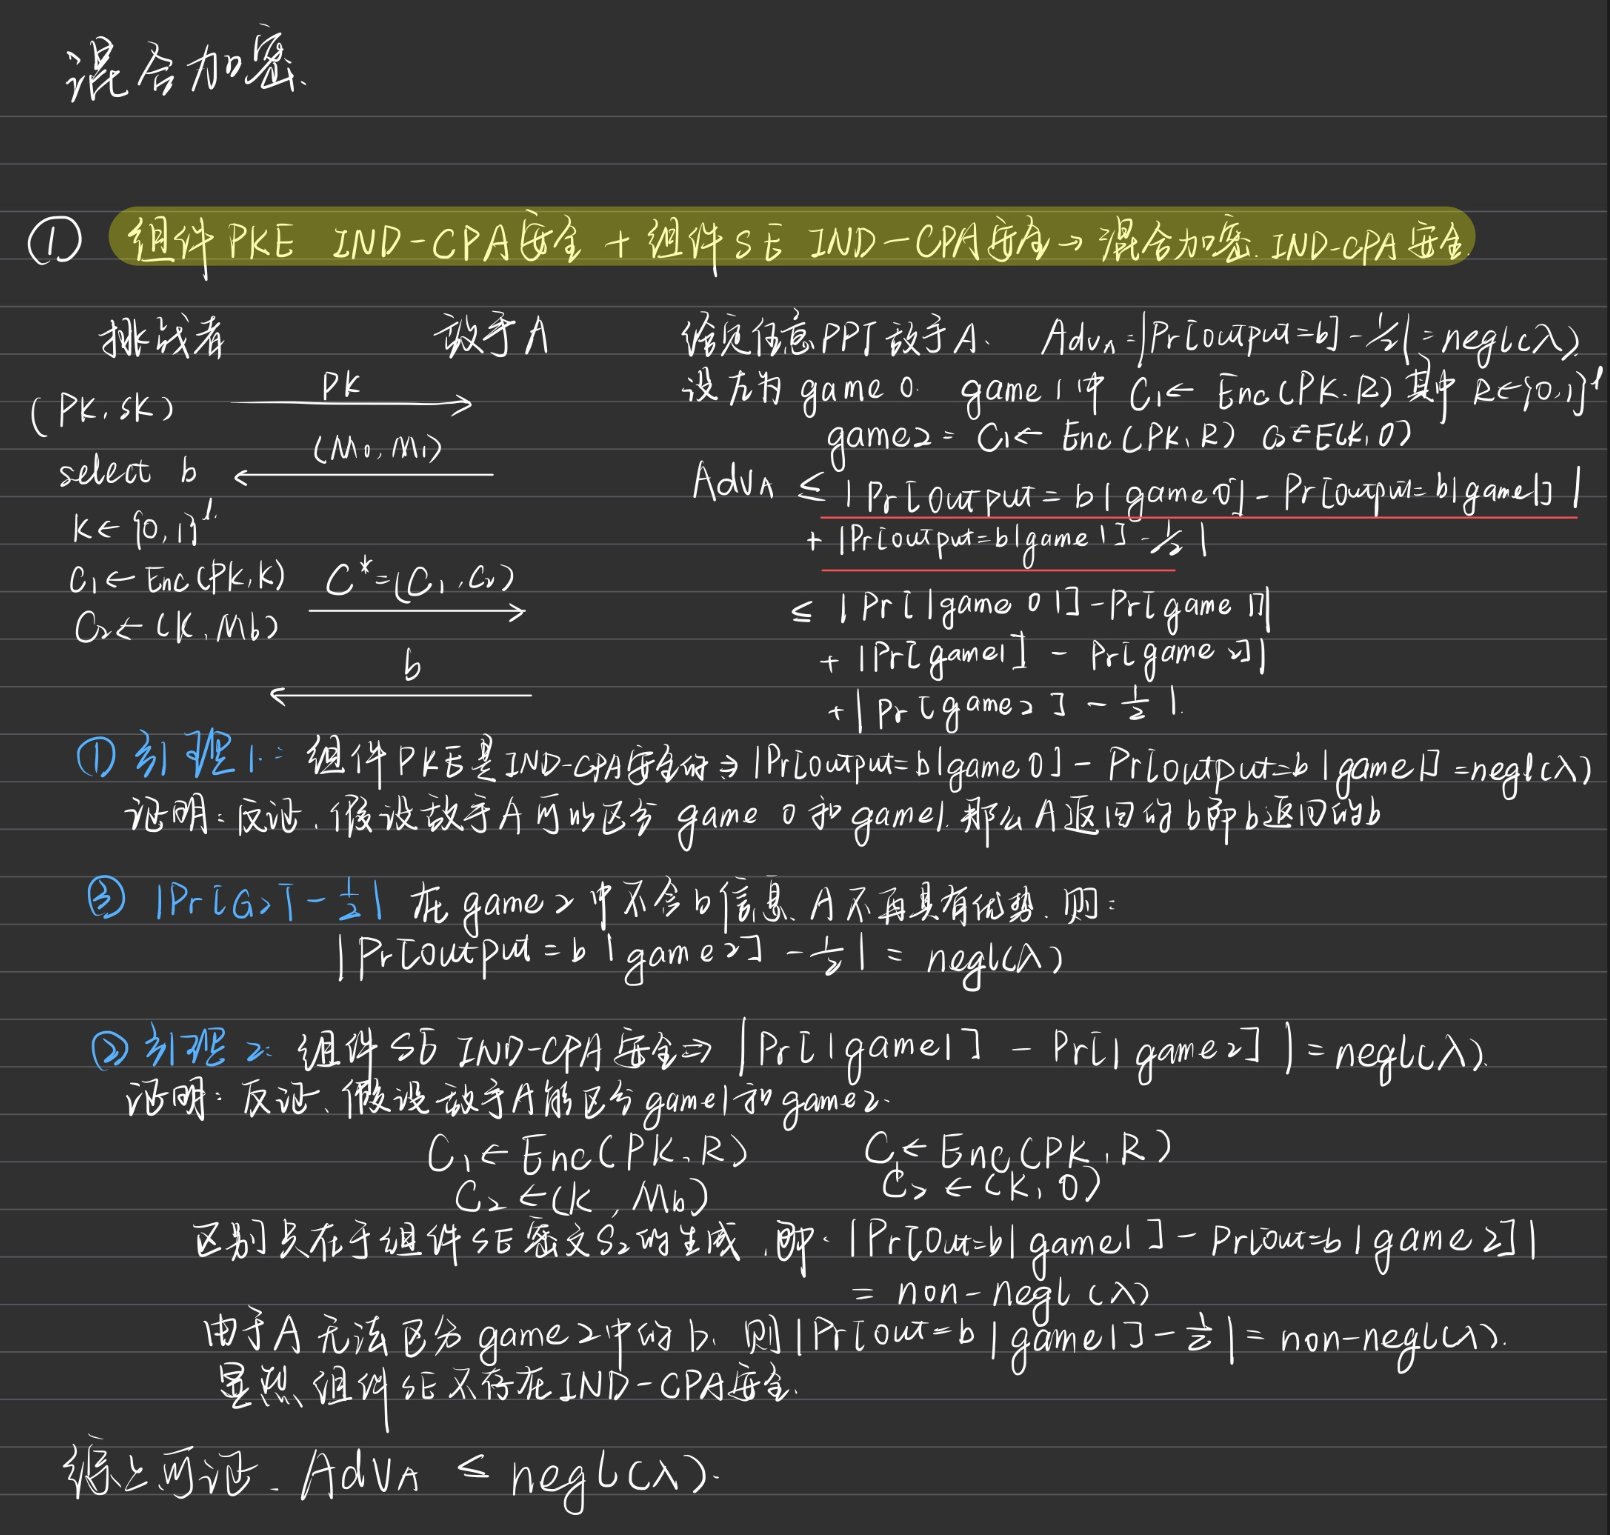 混合加密.
① 组件PKE IND-CPA安全 + 组件SE IND-CPA安全 → 混合加密. IND-CPA安全.
挑战者 敌手A
(PK, SK) PK
(M₀, M₁)
select b
K ← {0,1}^l
C₁ ← Enc(PK, K) C* = (C₁, C₂)
C₂ ← (K, Mb)
b
给定任意PPT敌手A. Adv_A = |Pr[output=b] - 1/2| = negl(λ)
设左为 game 0. game 1中 C₁ ← Enc(PK, R) 其中 R ← {0,1}^l
game2 = C₁ ← Enc(PK, R) C₂ ← E(K, 0)
Adv_A ≤ |Pr[output = b | game 0] - Pr[output = b | game1]|
+ |Pr[output=b | game 1] - 1/2|
≤ |Pr[|game 0|] - Pr[game 1]|
+ |Pr[game1] - Pr[game 2]|
+ |Pr[game2] - 1/2|.
① 引理1: 组件PKE是IND-CPA安全的 ⇒ |Pr[output=b|game 0] - Pr[output=b|game1]| = negl(λ)
证明: 反证. 假设敌手A可以区分 game 0 和 game1. 那么A返回的b即b返回的b
③ |Pr[G₂] - 1/2| 在game2中不含b信息, A不再具有优势. 则:
|Pr[output = b | game2] - 1/2| = negl(λ)
② 引理2: 组件SE IND-CPA安全 ⇒ |Pr[|game1] - Pr[|game2]| = negl(λ).
证明: 反证. 假设敌手A能区分game1和game2.
C₁ ← Enc(PK, R) C₁ ← Enc(PK, R)
C₂ ← (K, Mb) C₂ ← (K, 0)
区别点在于组件SE密文S₂的生成, 即: |Pr[Out=b|game1] - Pr[out=b|game2]|
= non-negl(λ)
由于A无法区分game2中的b, 则|Pr[out=b|game1] - 1/2| = non-negl(λ).
显然组件SE不存在IND-CPA安全.
综上可证. Adv_A ≤ negl(λ).